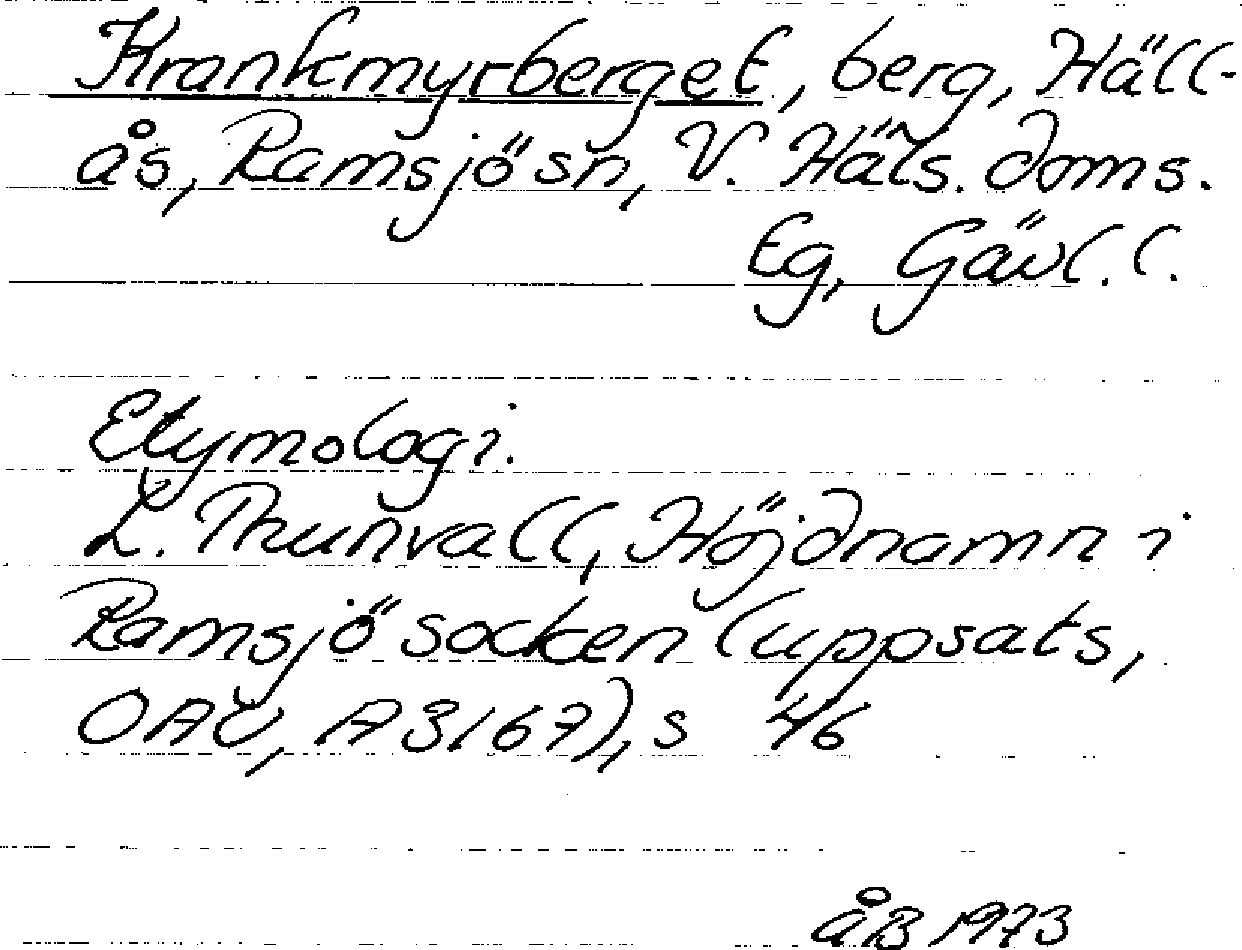 Krankmyrberget, berg, Häll-
ås, Ramsjö sn, V. Häls. doms.
Eg, Gävl. l.
Etymologi.
L. Thunvall, Höjdnamn i
Ramsjö socken (uppsats,
OAU, A 3167), s 46
ÅB 1973